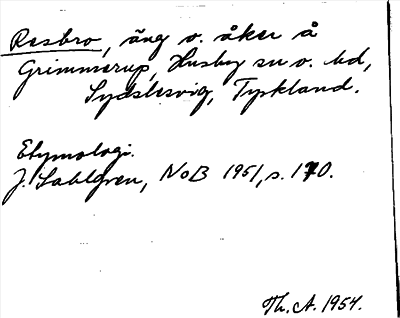 Resbro, äng o. åker å
Grimmerup, Husby sn o. hd,
Sydslesvig, Tyskland.
Etymologi.
J. Sahlgren, NoB 1951, s. 170.
Th. A. 1954.